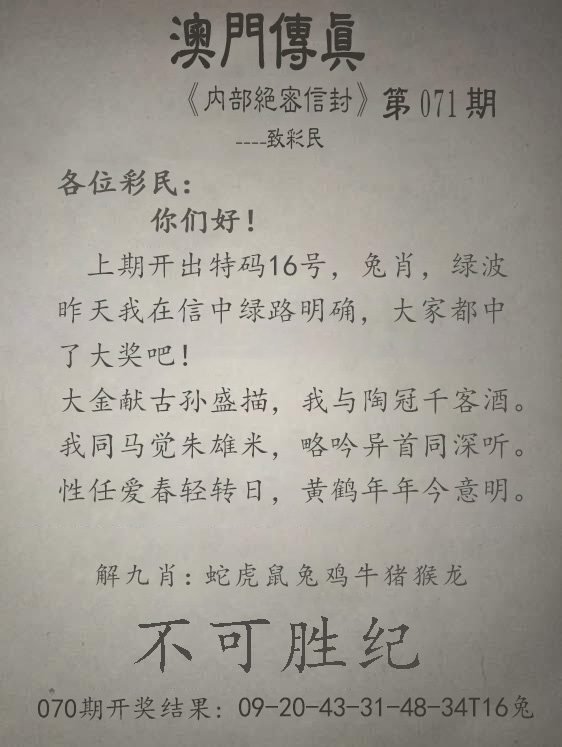 澳門傳真
《内部絕密信封》第071期
----致彩民
各位彩民：
你们好！
上期开出特码16号，兔肖，绿波
昨天我在信中绿路明确，大家都中
了大奖吧！
大金献古孙盛描，我与陶冠千客酒。
我同马觉朱雄米，略吟异首同深听。
性任爱春轻转日，黄鹤年年今意明。
解九肖：蛇虎鼠兔鸡牛猪猴龙
不可胜纪
070期开奖结果：09-20-43-31-48-34T16兔